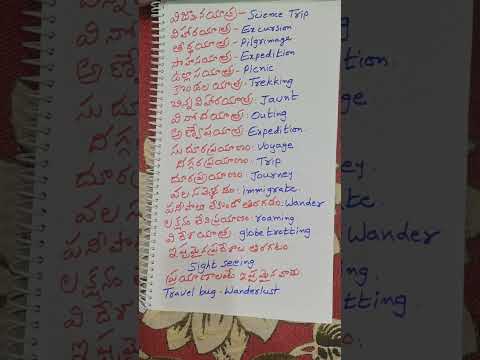 విజ్ఞానయాత్ర - Science Trip
విహారయాత్ర - Excursion
తీర్థయాత్ర - Pilgrimage
సాహసయాత్ర - Expedition
ఉల్లాసయాత్ర - Picnic
కొండలయాత్ర - Trekking
చిన్నవిహారయాత్ర : Jaunt
వినోదయాత్ర : Outing
అణ్వేషయాత్ర Expedition
సుదూరప్రయాణం : Voyage
దగ్గరప్రయాణం : Trip
దూరప్రయాణం : Journey
వలసవెళ్లడం : immigrate
పనిపాటా లేకుండా తిరగడం : Wander
లక్ష్యం లేని ప్రయాణం : roaming
విదేశయాత్ర : globetrotting
ఇష్టమైన ప్రదేశాలు తిరగటం
Sight seeing
ప్రయాణాలంటే ఇష్టమైన వారు
Travel bug - Wanderlust